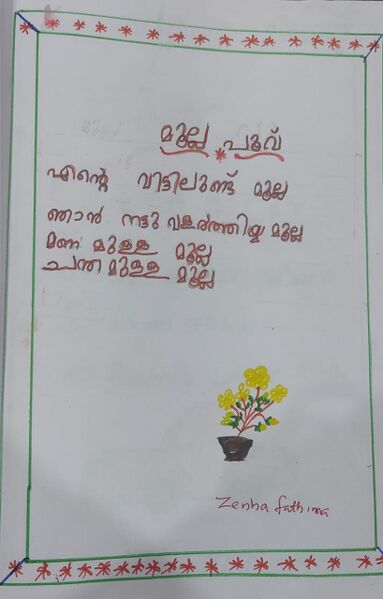 മുല്ല പൂവ്
എന്റെ വീട്ടിലുണ്ട് മുല്ല
ഞാൻ നട്ടു വളർത്തിയ്യ മുല്ല
മണ മുള്ള മുല്ല
ചന്ത മുള്ള മുല്ല
Zenha fathima